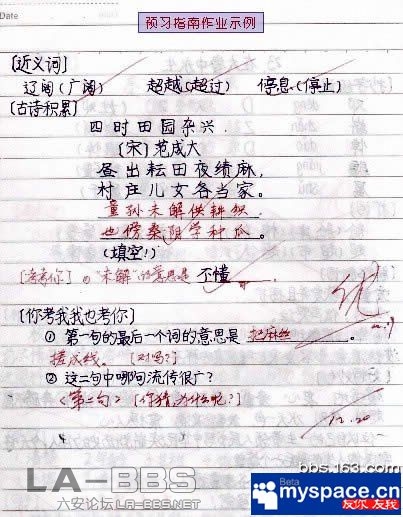 Date
预习指南作业示例
[近义词]
辽阔(广阔) 超越(超过) 停息(停止)
[古诗积累]
四时田园杂兴
[宋]范成大
昼出耘田夜绩麻,
村庄儿女各当家。
童孙未解供耕织,
也傍桑阴学种瓜。
(填空!)
[考考你] ①"未解"的意思是 不懂
[你考我我也考你]
① 第一句的最后一个词的意思是 把麻丝
搓成线。 [对吗?]
② 这二句中哪句流传很广?
<第二句> [你猜,为什么呢?]
优
12.20
LA-BBS
六安论坛LA-BBS.NET
bbs.163.com
Beta
myspace.cn
友你 友我